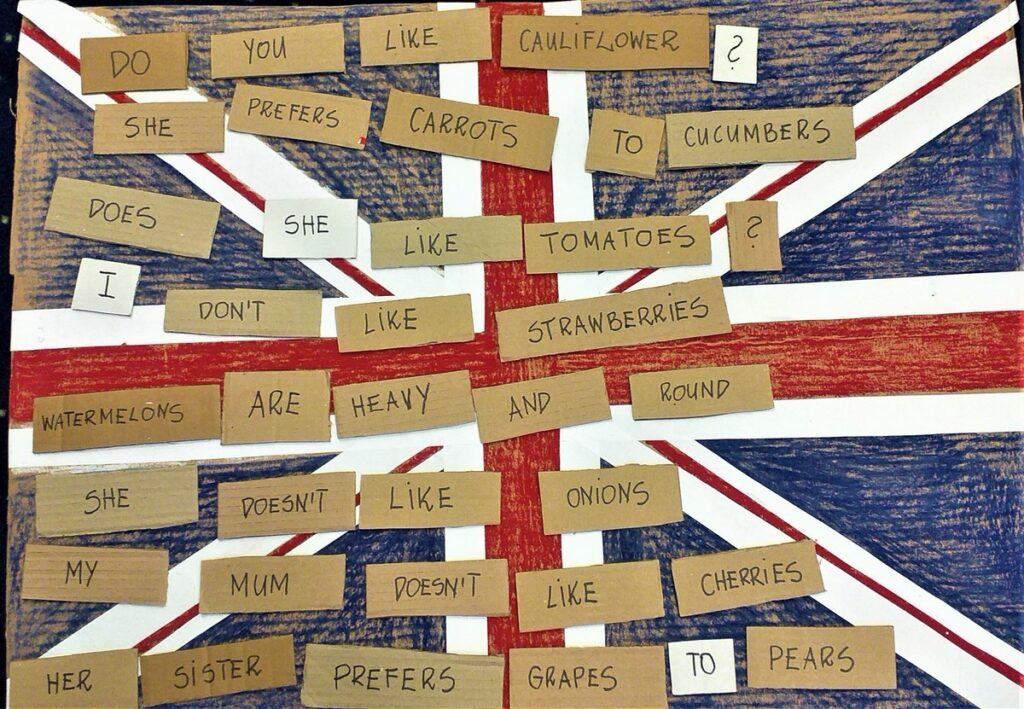 DO YOU LIKE CAULIFLOWER ?
SHE PREFERS CARROTS TO CUCUMBERS
DOES SHE LIKE TOMATOES ?
I DON'T LIKE STRAWBERRIES
WATERMELONS ARE HEAVY AND ROUND
SHE DOESN'T LIKE ONIONS
MY MUM DOESN'T LIKE CHERRIES
HER SISTER PREFERS GRAPES TO PEARS